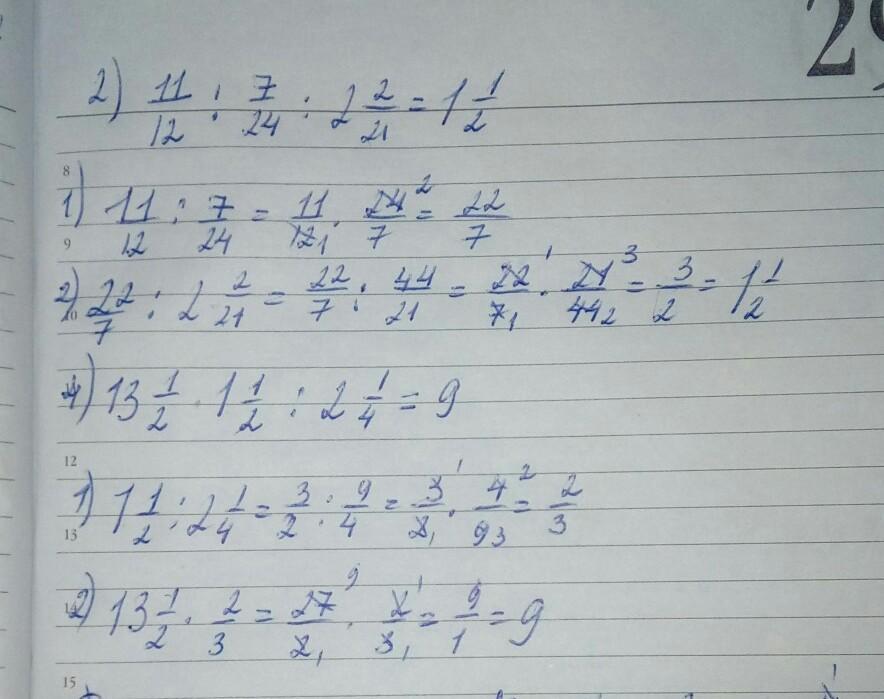 29
2) 11/12 : 7/24 : 2 2/21 = 1 1/2
8
1) 11/12 : 7/24 = 11/12₁ · 24²/7 = 22/7
9
2) 22/7 : 2 2/21 = 22/7 : 44/21 = 22¹/7₁ · 21³/44₂ = 3/2 = 1 1/2
10
4) 13 1/2 · 1 1/2 : 2 1/4 = 9
12
1) 1 1/2 : 2 1/4 = 3/2 : 9/4 = 3¹/2₁ · 4²/9₃ = 2/3
13
2) 13 1/2 · 2/3 = 27⁹/2₁ · 2¹/3₁ = 9/1 = 9
14
15